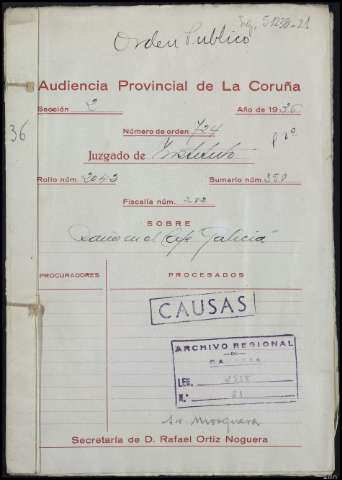 Leg. S1238-21
Orden Publico
Audiencia Provincial de La Coruña
Sección 2 Año de 1936
36
Número de orden 724
Juzgado de Instructo
Rollo núm. 2043 Sumario núm. 359
Fiscalía núm.
SOBRE
Daños en el Café Galicia
PROCURADORES PROCESADOS
CAUSAS
ARCHIVO REGIONAL
DE
GALICIA
LEG.
N.° 21
Sr. Mosquera
Secretaría de D. Rafael Ortiz Noguera